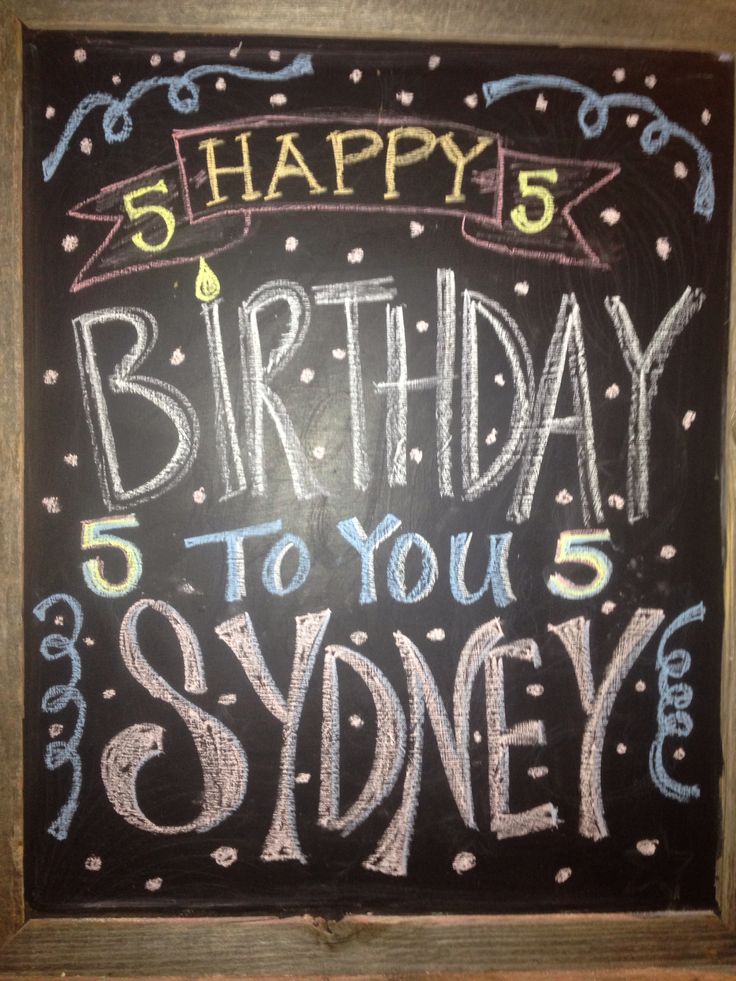 5 HAPPY 5
BIRTHDAY
5 TO YOU 5
SYDNEY